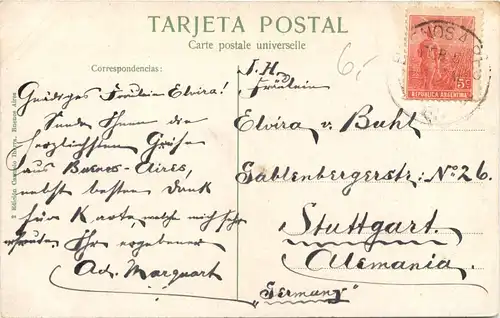 TARJETA POSTAL
Carte postale universelle
Correspondencias:
Gnädiges Fräulein Elvira!
Sende Ihnen die
herzlichsten Grüße
aus Buenos-Aires,
nebst besten Dank
für Karte, welche mich sehr
erfreuten Ihr ergebener
Ad. Marquart
6,-
I. H.
Fräulein
Elvira v. Buhl
Gablenbergerstr: No 26.
Stuttgart.
Alemania.
"Germany"
BUENOS AIRES
5c
REPUBLICA ARGENTINA
Buenos Aires